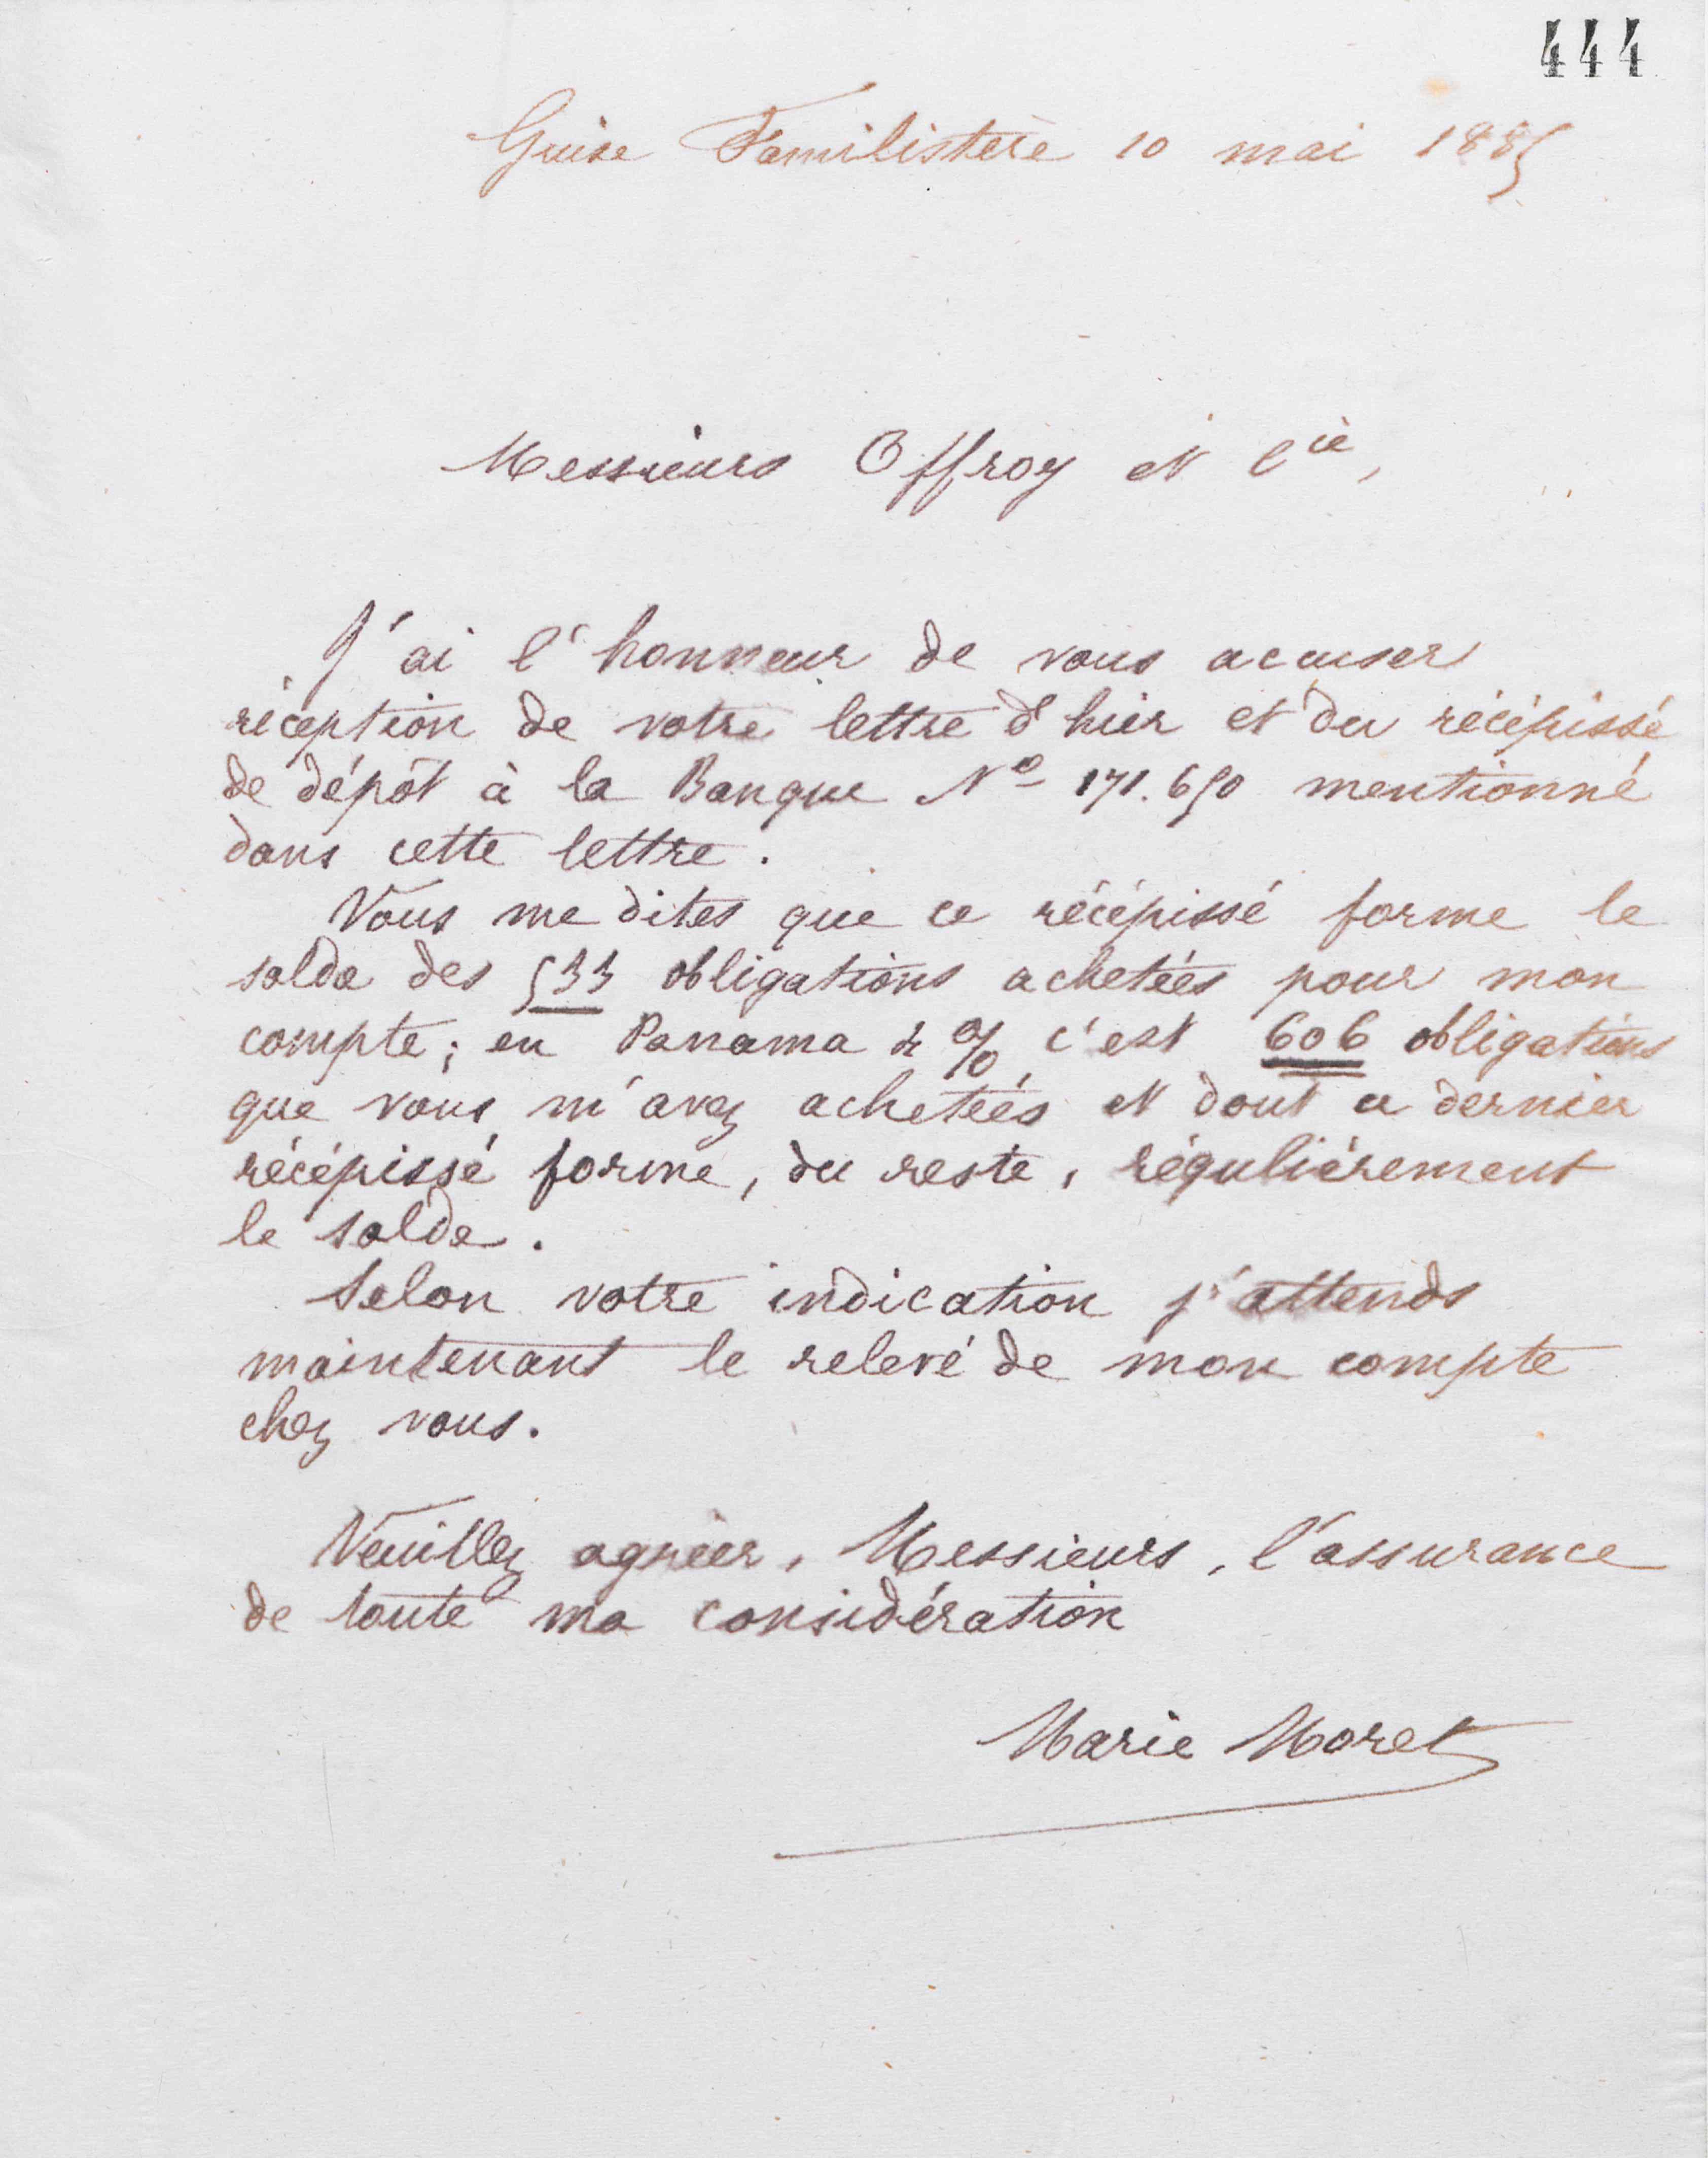 444
Guise Familistère 10 mai 1885
Messieurs Offroy et Cie,
J'ai l'honneur de vous accuser
réception de votre lettre d'hier et du récépissé
de dépôt à la Banque No 171.650 mentionné
dans cette lettre.
Vous me dites que ce récépissé forme le
solde des 533 obligations achetées pour mon
compte; en Panama % c'est 606 obligations
que vous m'avez achetées et dont ce dernier
récépissé forme, du reste, régulièrement
le solde.
Selon votre indication j'attends
maintenant le relevé de mon compte
chez vous.
Veuillez agréer, Messieurs, l'assurance
de toute ma considération
Marie Moret